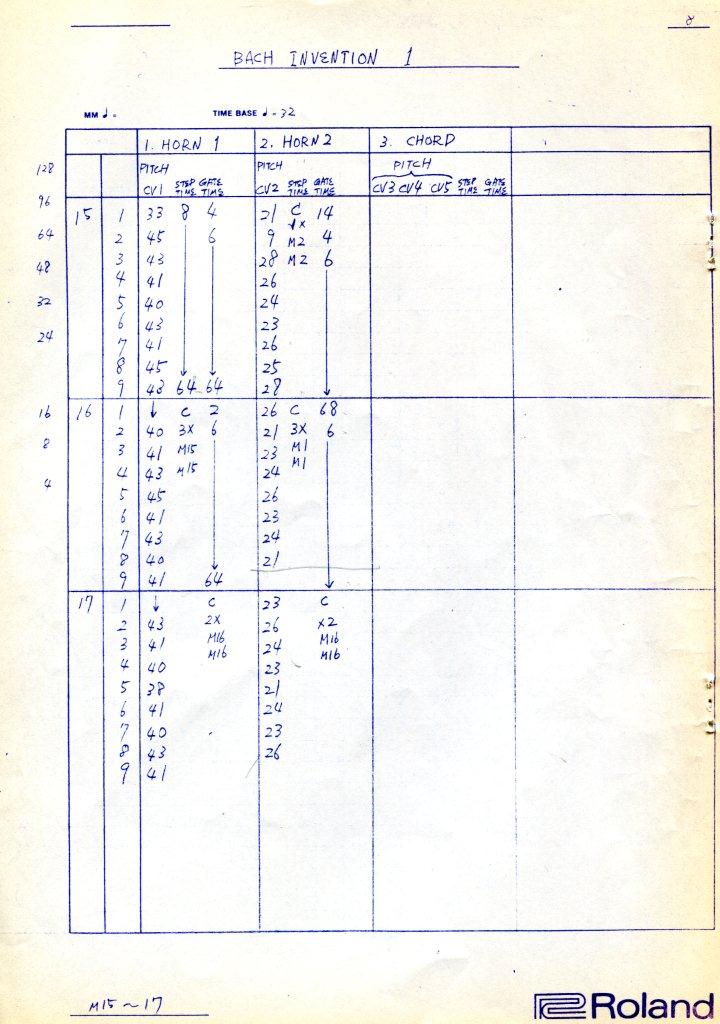 8
BACH INVENTION 1
MM ♩ = TIME BASE ♩ = 32
1. HORN 1 2. HORN 2 3. CHORD
128 PITCH PITCH PITCH
CV1 STEP TIME GATE TIME CV2 STEP TIME GATE TIME CV3 CV4 CV5 STEP TIME GATE TIME
96
15 1 33 8 4 21 C 14
1x
64 2 45 6 9 M2 4
3 43 28 M2 6
48 4 41 26
32 5 40 24
6 43 23
24 7 41 26
8 45 25
9 43 64 64 28
16 16 1 ↓ C 2 26 C 68
8 2 40 3X 6 21 3X 6
3 41 M15 23 M1
4 4 43 M15 24 M1
5 45 26
6 41 23
7 43 24
8 40 21
9 41 64
17 1 ↓ C 23 C
2 43 2X 26 X2
3 41 M16 24 M16
4 40 M16 23 M16
5 38 21
6 41 24
7 40 23
8 43 26
9 41
M15 ~ 17
Roland